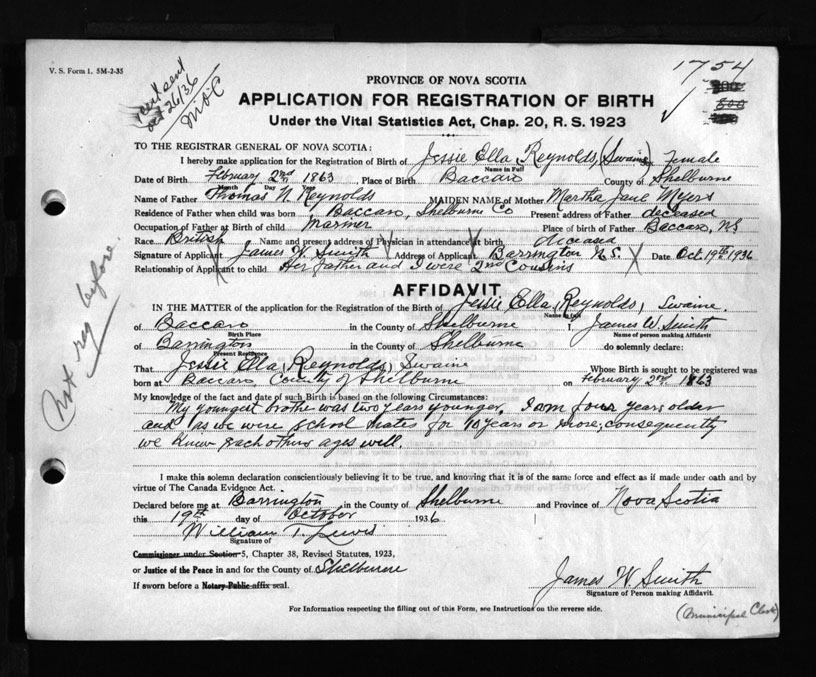 V. S. Form 1. 5M-2-35
cert sent
Oct 26/36
1754
PROVINCE OF NOVA SCOTIA
APPLICATION FOR REGISTRATION OF BIRTH
Under the Vital Statistics Act, Chap. 20, R. S. 1923
TO THE REGISTRAR GENERAL OF NOVA SCOTIA:
I hereby make application for the Registration of Birth of Jessie Ella Reynolds, (Swaine) Female
Name in Full
Date of Birth February 2nd 1863 Place of Birth Baccaro County of Shelburne
Month Day Year
Name of Father Thomas N. Reynolds MAIDEN NAME of Mother Martha Jane Myers
Residence of Father when child was born Baccaro, Shelburne Co Present address of Father deceased
Occupation of Father at Birth of child Mariner Place of birth of Father Baccaro, NS
Race British Name and present address of Physician in attendance at birth deceased
Signature of Applicant James W. Smith Address of Applicant Barrington N.S. Date Oct 19th 1936
Relationship of Applicant to child Her father and I were 2nd Cousins
AFFIDAVIT
IN THE MATTER of the application for the Registration of the Birth of Jessie Ella (Reynolds) Swaine
Name in Full
of Baccaro in the County of Shelburne I, James W. Smith
Birth Place Name of person making Affidavit
of Barrington in the County of Shelburne do solemnly declare:
Present Residence
That Jessie Ella (Reynolds) Swaine Whose Birth is sought to be registered was
born at Baccaro, County of Shelburne on February 2nd 1863
My knowledge of the fact and date of such Birth is based on the following Circumstances:
My youngest brothe was two years younger, I am four years older
and as we were school mates for 10 years or more; consequently
we knew each others ages well.
I make this solemn declaration conscientiously believing it to be true, and knowing that it is of the same force and effect as if made under oath and by
virtue of The Canada Evidence Act.
Declared before me at Barrington in the County of Shelburne and Province of Nova Scotia
this 19th day of October 1936
William T. Lewis
Signature of
Commissioner under Section 5, Chapter 38, Revised Statutes, 1923,
or Justice of the Peace in and for the County of Shelburne
If sworn before a Notary Public affix seal.
James W. Smith
Signature of Person making Affidavit.
For Information respecting the filling out of this Form, see Instructions on the reverse side.
(Municipal Clerk)
Not reg before.